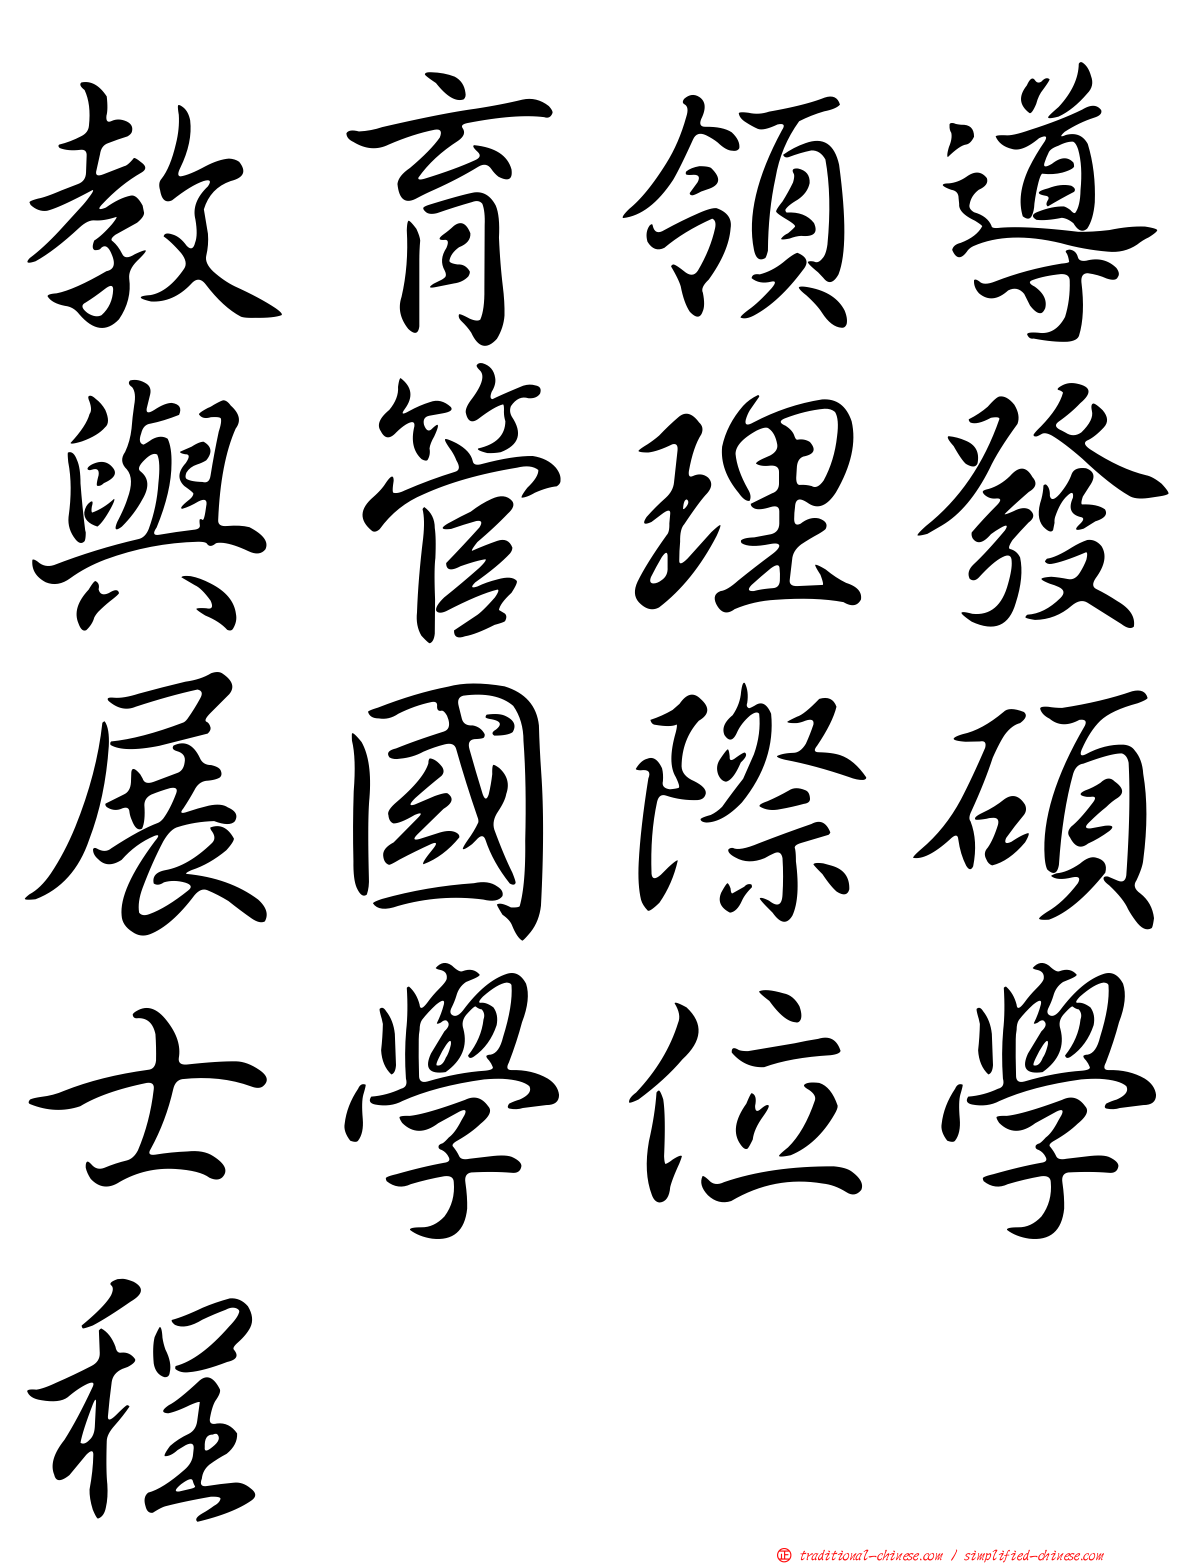 教育領導
與管理發
展國際碩
士學位學
程
㊣ traditional-chinese.com / simplified-chinese.com